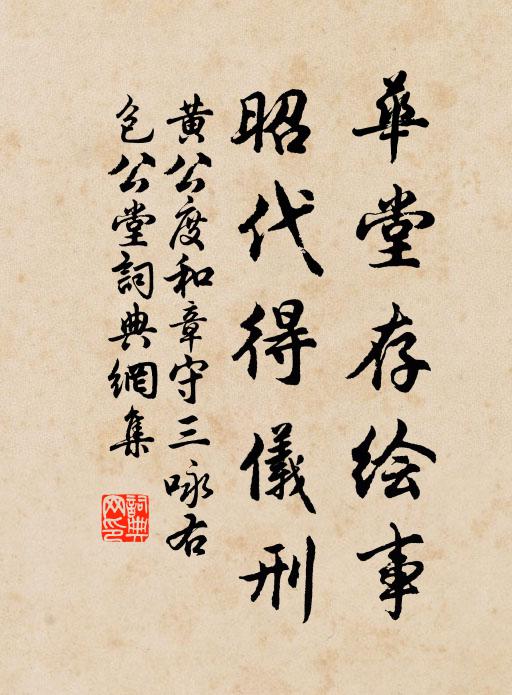 華堂存绘事
昭代得儀刑
黄公度和章守三咏右
包公堂詞典網集
詞典网印